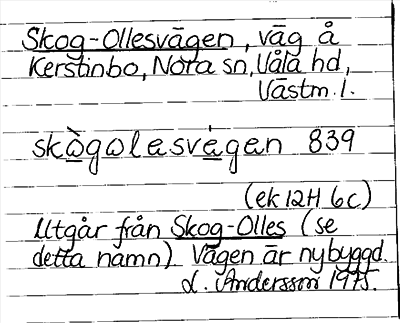 Skog-Ollesvägen, väg å
Kerstinbo, Nora sn, Våla hd,
Västm. l.
skògolesvágen 839
(ek 12H 6c)
Utgår från Skog-Olles (se
detta namn) Vägen är nybyggd.
L. Andersson 1975.